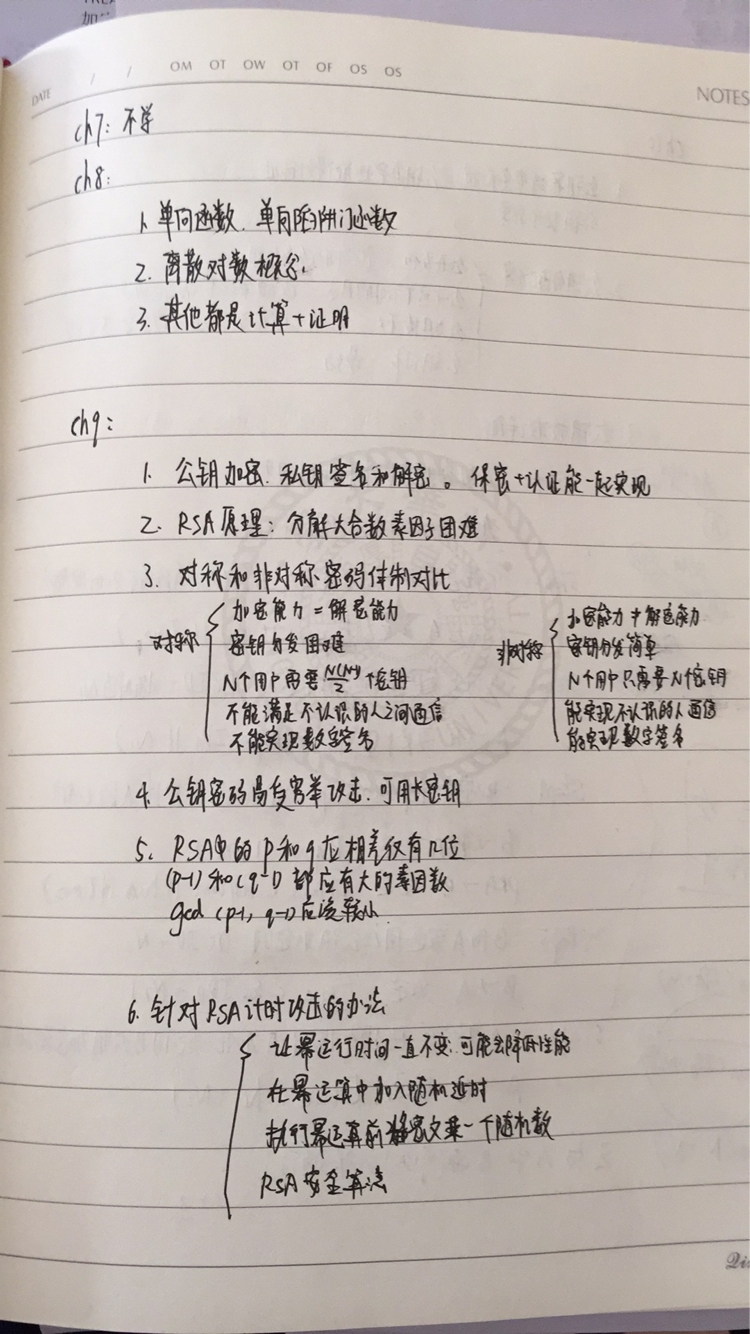 加
DATE / / OM OT OW OT OF OS OS
NOTES
ch7: 不学
ch8:
1. 单向函数、单向陷阱门函数
2. 离散对数概念.
3. 其他都是计算+证明
ch9:
1. 公钥加密、私钥签名和解密。保密+认证能一起实现
2. RSA原理: 分解大合数素因子困难
3. 对称和非对称密码体制对比
对称
加密能力=解密能力
密钥分发困难
N个用户需要N(N-1)/2个密钥
不能满足不认识的人之间通信
不能实现数字签名
非对称
加密能力≠解密能力
密钥分发简单
N个用户只需要N个密钥
能实现不认识的人通信
能实现数字签名
4. 公钥密码易受穷举攻击.可用长密钥
5. RSA中的p和q应相差仅有几位
(p-1)和(q-1)都应有大的素因数
gcd(p-1, q-1)应该较小
6. 针对RSA计时攻击的办法
让幂运行时间一直不变.可能会降低性能
在幂运算中加入随机延时
执行幂运算前将密文乘一个随机数
RSA安全算法